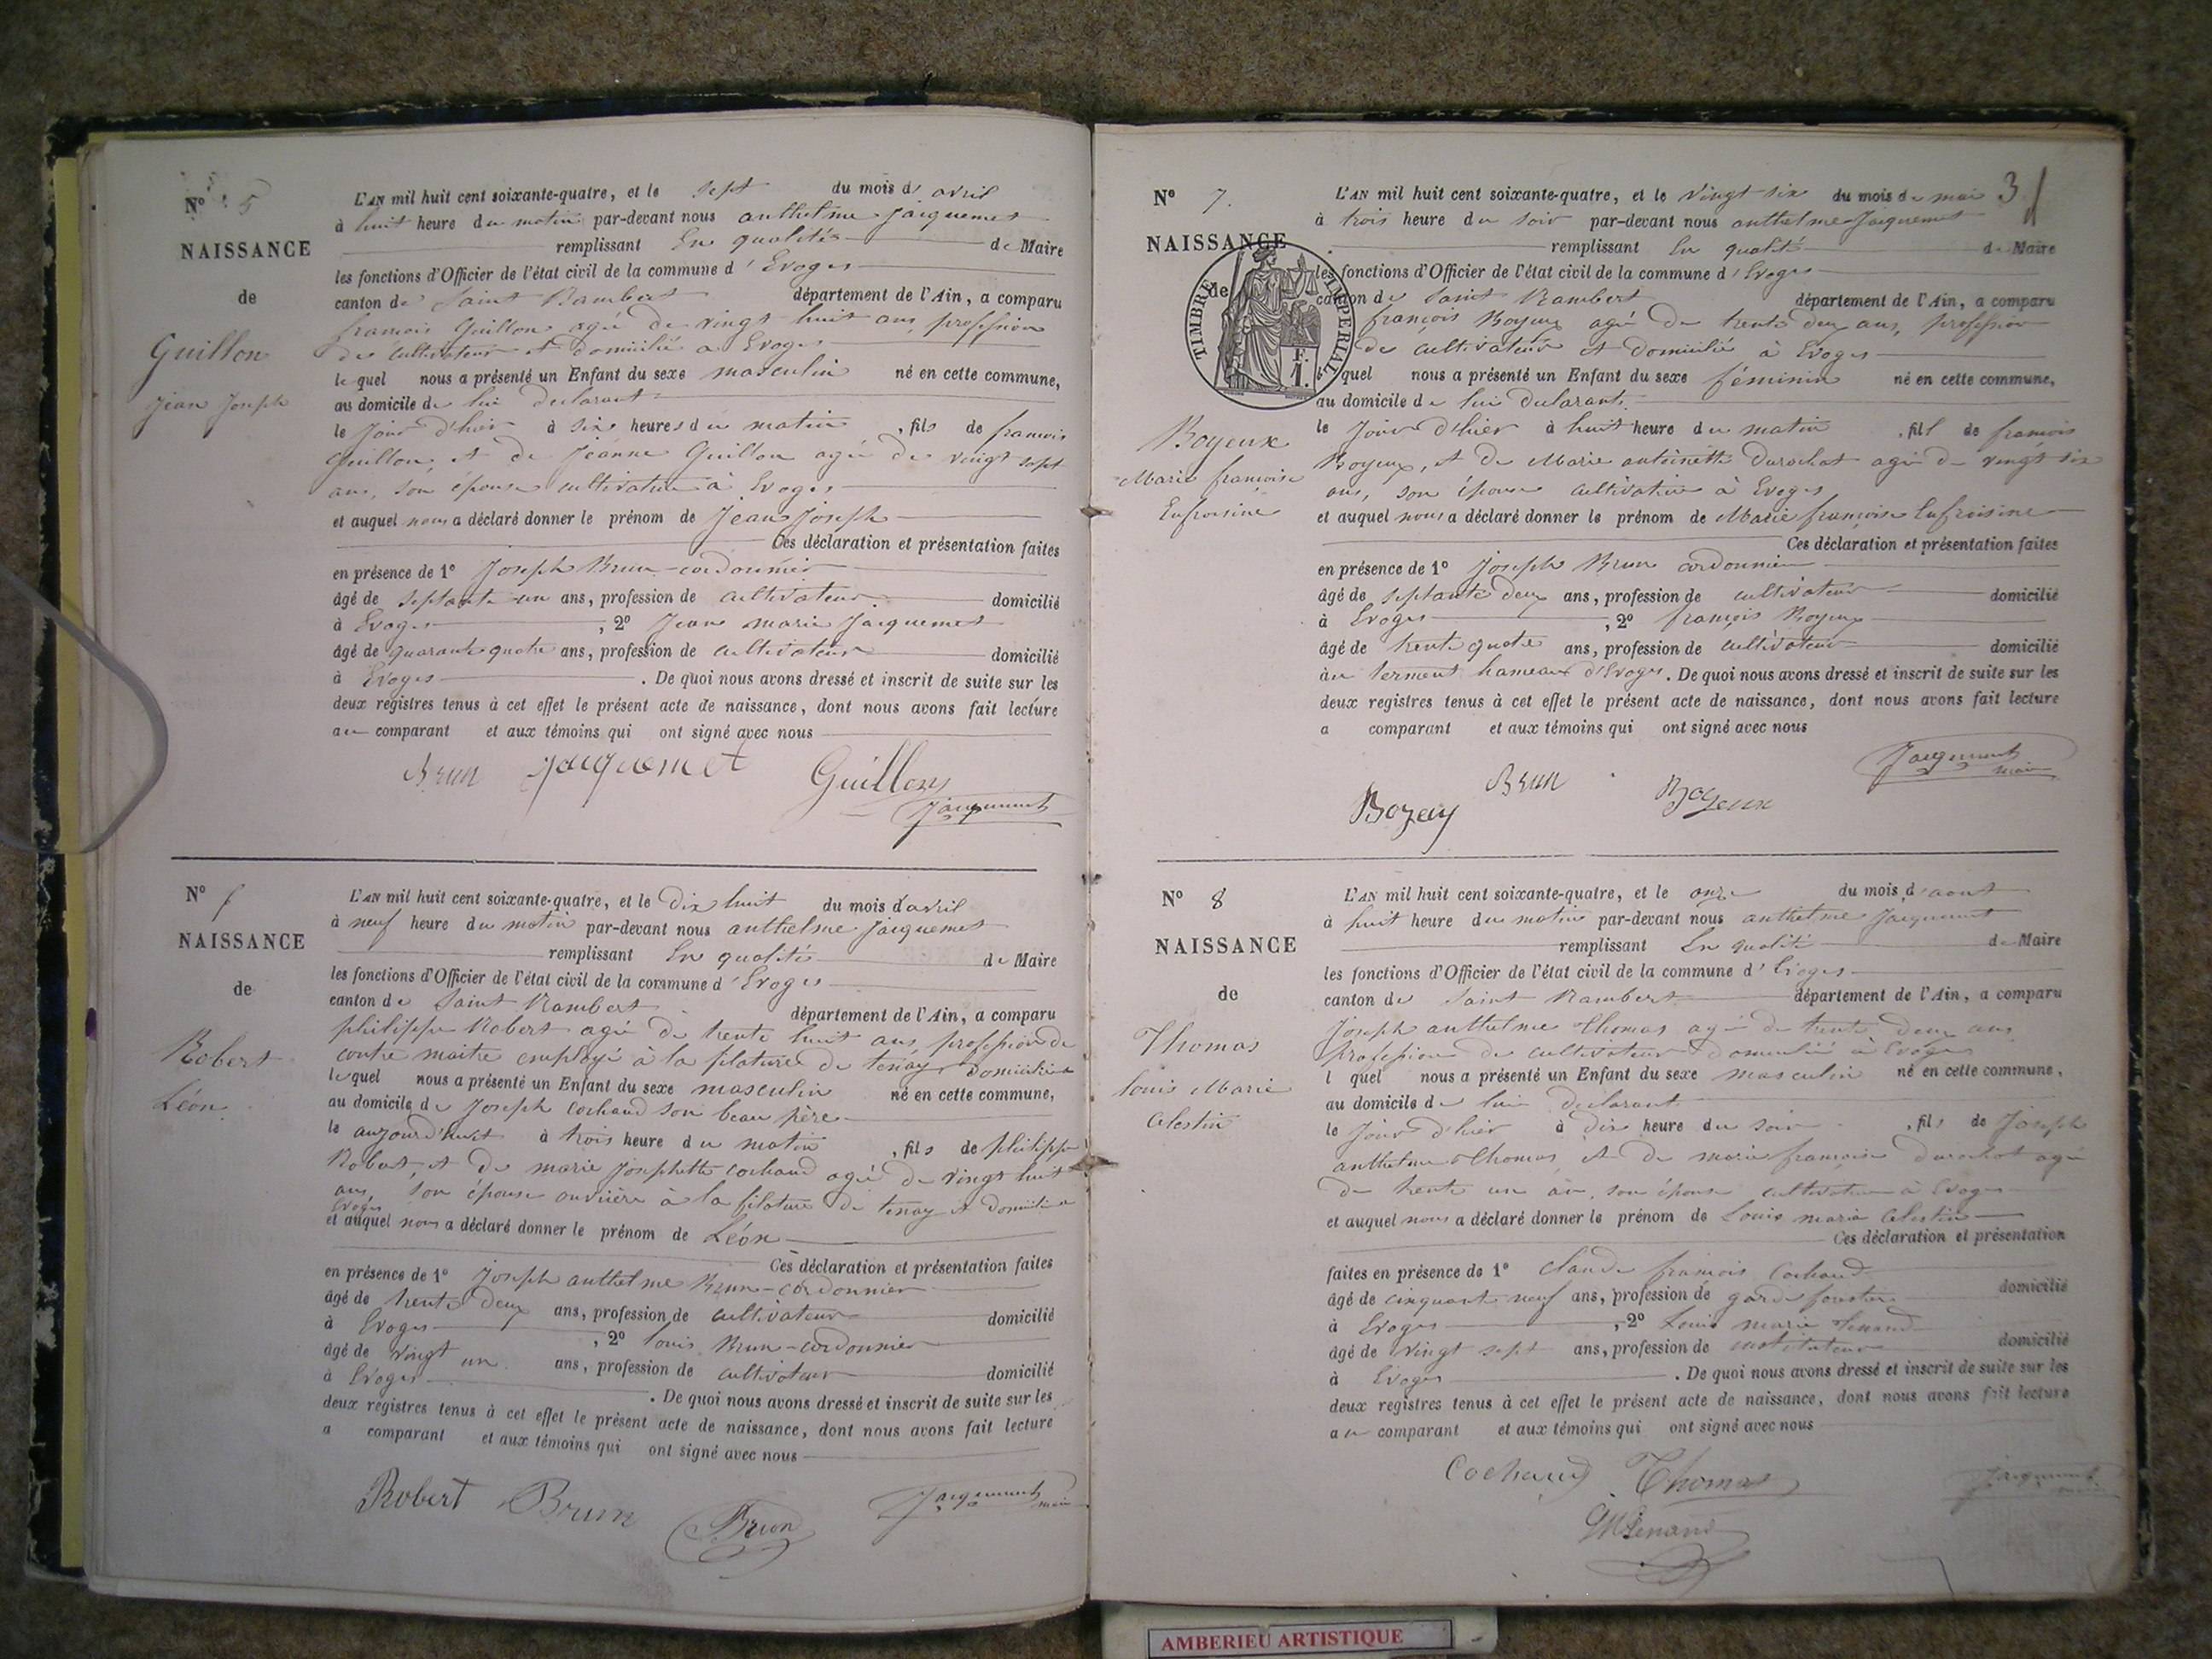 N° 5
NAISSANCE
de
Guillon
Jean Joseph
L'AN mil huit cent soixante-quatre, et le sept du mois d' avril
à huit heure du matin par-devant nous anthelme Jacquemet
remplissant En qualités de Maire
les fonctions d'Officier de l'état civil de la commune d' Evoges
canton de Saint Rambert département de l'Ain, a comparu
francois Guillon agé de vingt huit ans, profession
de cultivateur et domicilié a Evoges
lequel nous a présenté un Enfant du sexe masculin né en cette commune,
au domicile de lui declarant
le jour d'hier à six heures du matin , fils de francois
Guillon, et de Jeanne Guillon agée de vingt sept
ans, son épouse cultivatrice à Evoges
et auquel nous a déclaré donner le prénom de Jean Joseph
Ces déclaration et présentation faites
en présence de 1° Joseph Brun-cordonnier
âgé de septante un ans, profession de cultivateur domicilié
à Evoges , 2° Jean marie Jacquemet
âgé de quarante quatre ans, profession de cultivateur domicilié
à Evoges . De quoi nous avons dressé et inscrit de suite sur les
deux registres tenus à cet effet le présent acte de naissance, dont nous avons fait lecture
au comparant et aux témoins qui ont signé avec nous
Brun Jacquemet Guillon
Jacquemet
N°
NAISSANCE
de
Robert
Léon
L'AN mil huit cent soixante-quatre, et le Dix huit du mois d'avril
à neuf heure du matin par-devant nous anthelme Jacquemet
remplissant En qualité de Maire
les fonctions d'Officier de l'état civil de la commune d' Evoges
canton de Saint Rambert département de l'Ain, a comparu
philippe Robert agé de trente huit ans, profession de
contre maitre employé à la filature de tenay domicilié a
lequel nous a présenté un Enfant du sexe masculin né en cette commune,
au domicile de Joseph cochaud son beau père
le aujourd'huit à trois heure du matin , fils de philippe
Robert, et de marie Josephette cochaud agé de vingt huit
ans, son épouse ouvrière à la filature de tenay et domiciliée a
Evoges
et auquel nous a déclaré donner le prénom de Léon
Ces déclaration et présentation faites
en présence de 1° Joseph anthelme Brun-cordonnier
âgé de trente deux ans, profession de cultivateur domicilié
à Evoges , 2° louis Brun-cordonnier
âgé de vingt un ans, profession de cultivateur domicilié
à Evoges . De quoi nous avons dressé et inscrit de suite sur les
deux registres tenus à cet effet le présent acte de naissance, dont nous avons fait lecture
a comparant et aux témoins qui ont signé avec nous
Robert Brun Brun Jacquemet maire
3
N° 7.
NAISSANCE
de
TIMBRE IMPERIAL
F.
1.
Royeux
Marie françoise
Eufroisine
L'AN mil huit cent soixante-quatre, et le vingt six du mois de mai
à trois heure du soir par-devant nous anthelme Jacquemet
remplissant En qualité de Maire
les fonctions d'Officier de l'état civil de la commune d' Evoges
canton de Saint Rambert département de l'Ain, a comparu
françois Royeux agé de trente deux ans, profession
de cultivateur et domicilié à Evoges
quel nous a présenté un Enfant du sexe féminin né en cette commune,
au domicile de lui declarant
le jour d'hier à huit heure du matin , fill de françois
Royeux, et de Marie antoinette Durochat agé de vingt six
ans, son épouse cultivatrice à Evoges
et auquel nous a déclaré donner le prénom de Marie françoise Eufroisine
Ces déclaration et présentation faites
en présence de 1° Joseph Brun cordonnier
âgé de septante deux ans, profession de cultivateur domicilié
à Evoges , 2° françois Royeux
âgé de trente quatre ans, profession de cultivateur domicilié
au terment hameau d'Evoges. De quoi nous avons dressé et inscrit de suite sur les
deux registres tenus à cet effet le présent acte de naissance, dont nous avons fait lecture
a comparant et aux témoins qui ont signé avec nous
Jacquemet maire
Brun Royeux
N° 8
NAISSANCE
de
Thomas
Louis Marie
Celestin
L'AN mil huit cent soixante-quatre, et le onze du mois d' aout
à huit heure du matin par-devant nous anthelme Jacquemet
remplissant En qualité de Maire
les fonctions d'Officier de l'état civil de la commune d' Evoges
canton de Saint Rambert département de l'Ain, a comparu
Joseph anthelme Thomas agé de trente deux ans
profession de cultivateur domicilié à Evoges
l quel nous a présenté un Enfant du sexe masculin né en cette commune,
au domicile de lui declarant
le jour d'hier à dix heure du soir , fils de Joseph
anthelme Thomas et de marie françoise Durochat agé
de trente un an, son épouse cultivatrice à Evoges
et auquel nous a déclaré donner le prénom de Louis marie Celestin
Ces déclaration et présentation
faites en présence de 1° claude francois Cochaud
âgé de cinquante neuf ans, profession de garde forestier domicilié
à Evoges , 2° Louis marie
âgé de vingt sept ans, profession de instituteur domicilié
à Evoges . De quoi nous avons dressé et inscrit de suite sur les
deux registres tenus à cet effet le présent acte de naissance, dont nous avons fait lecture
au comparant et aux témoins qui ont signé avec nous
Cochaud Thomas Jacquemet maire
AMBERIEU ARTISTIQUE